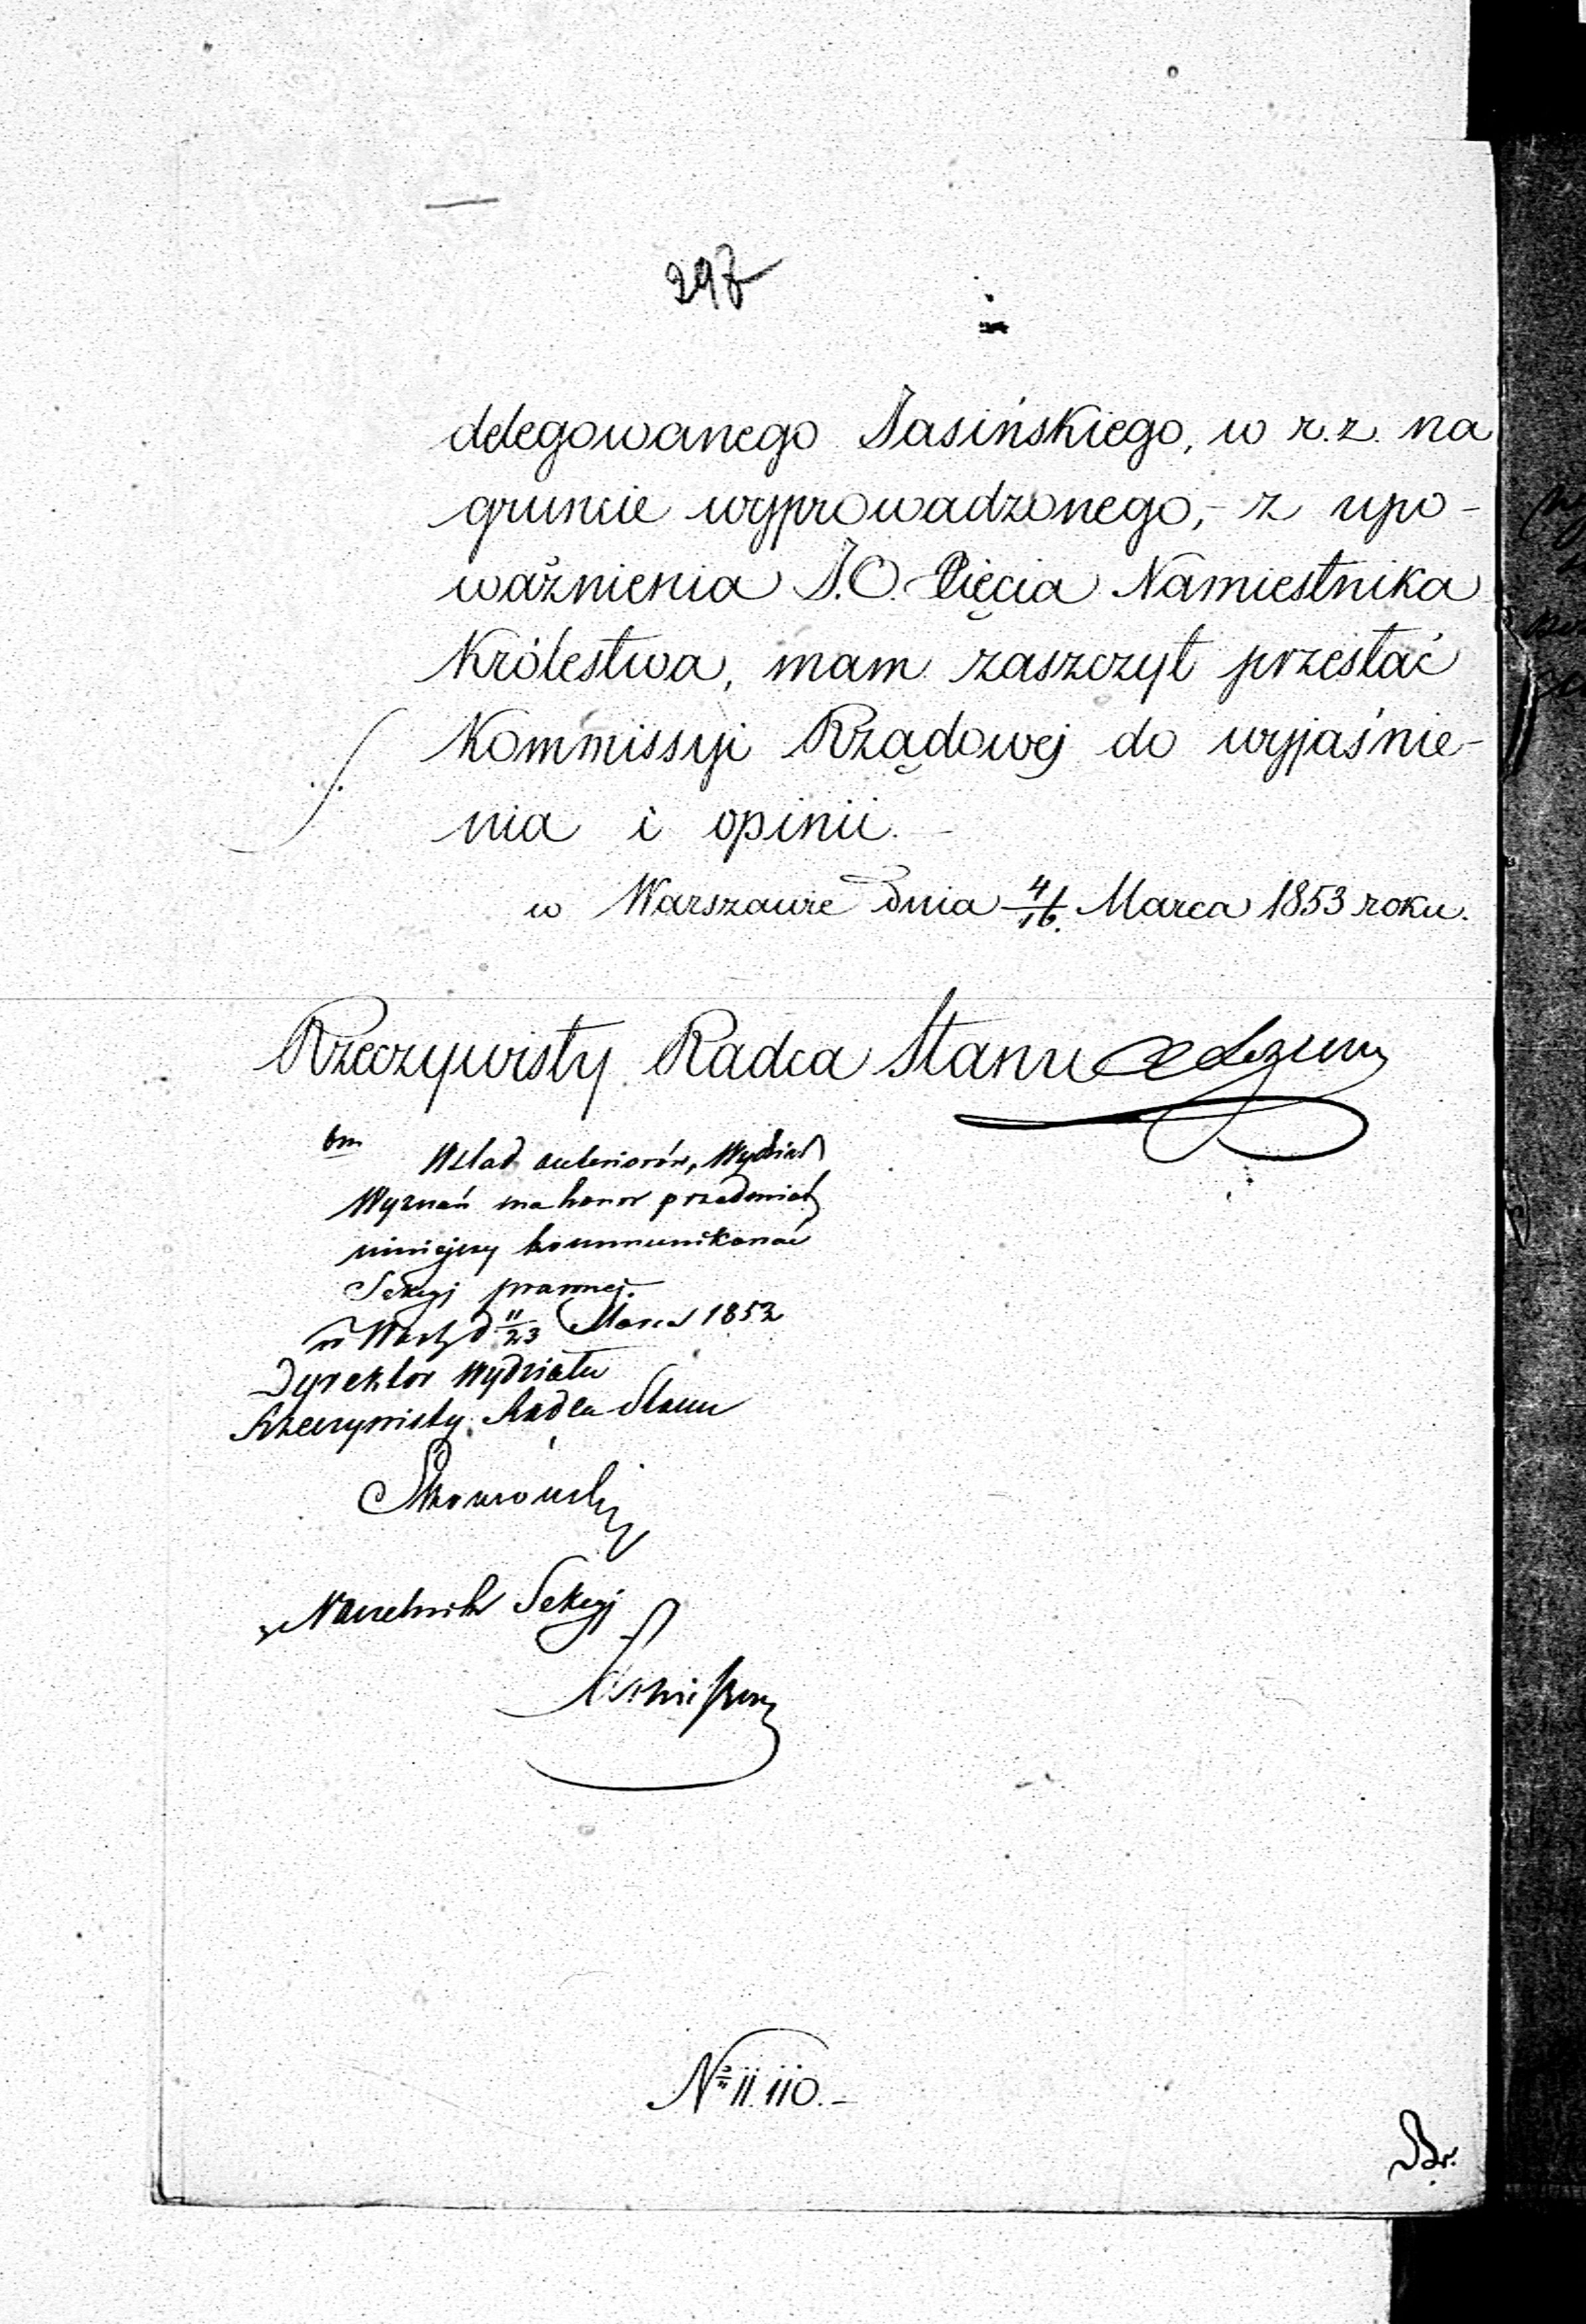 297
delegowanego Jasińskiego, w r.z. na
gruncie wyprowadzonego,- z upo-
ważnienia J.O. Xięcia Namiestnika
Królestwa, mam zaszczyt przesłać
Kommissyi Rządowej do wyjaśnie-
nia i opinii.-
w Warszawie dnia 4/16. Marca 1853 roku.
Rzeczywisty Radca Stanu
W ślad anteriorów, Wydział
Wyznań ma honor przedmiot
niniejszy kommunikować
Sekcyj prawnej.
d 11/23 Marca 1853
Dyrektor Wydziału
Rzeczywisty Radca Stanu
Naczelnik Sekcyj
№ 11.110.-